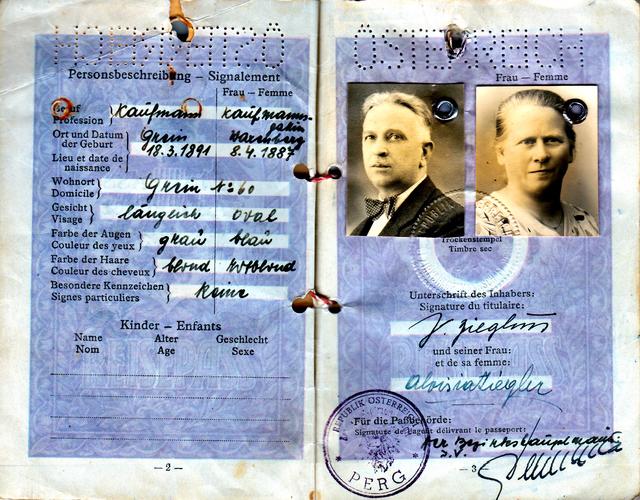 ÖSTERREICH
Personsbeschreibung – Signalement
Frau – Femme
Beruf
Profession
Kaufmann
Kaufmanns-
gattin
Ort und Datum
der Geburt
Grein
Lieu et date de
naissance
18.3.1891
8.4.1887
Wohnort
Domicile
Grein No 60
Gesicht
Visage
länglich
oval
Farbe der Augen
Couleur des yeux
grau
blau
Farbe der Haare
Couleur des cheveux
blond
rotblond
Besondere Kennzeichen
Signes particuliers
keine
Kinder – Enfants
Name
Alter
Geschlecht
Nom
Age
Sexe
– 2 –
Frau – Femme
Trockenstempel
Timbre sec
Unterschrift des Inhabers:
Signature du titulaire:
J. Ziegler
und seiner Frau:
et de sa femme:
Aloisia Ziegler
Für die Paßbehörde:
Signature de l'agent délivrant le passeport:
Der Bezirkshauptmann
I.V.
REPUBLIK ÖSTERREICH
PERG
– 3